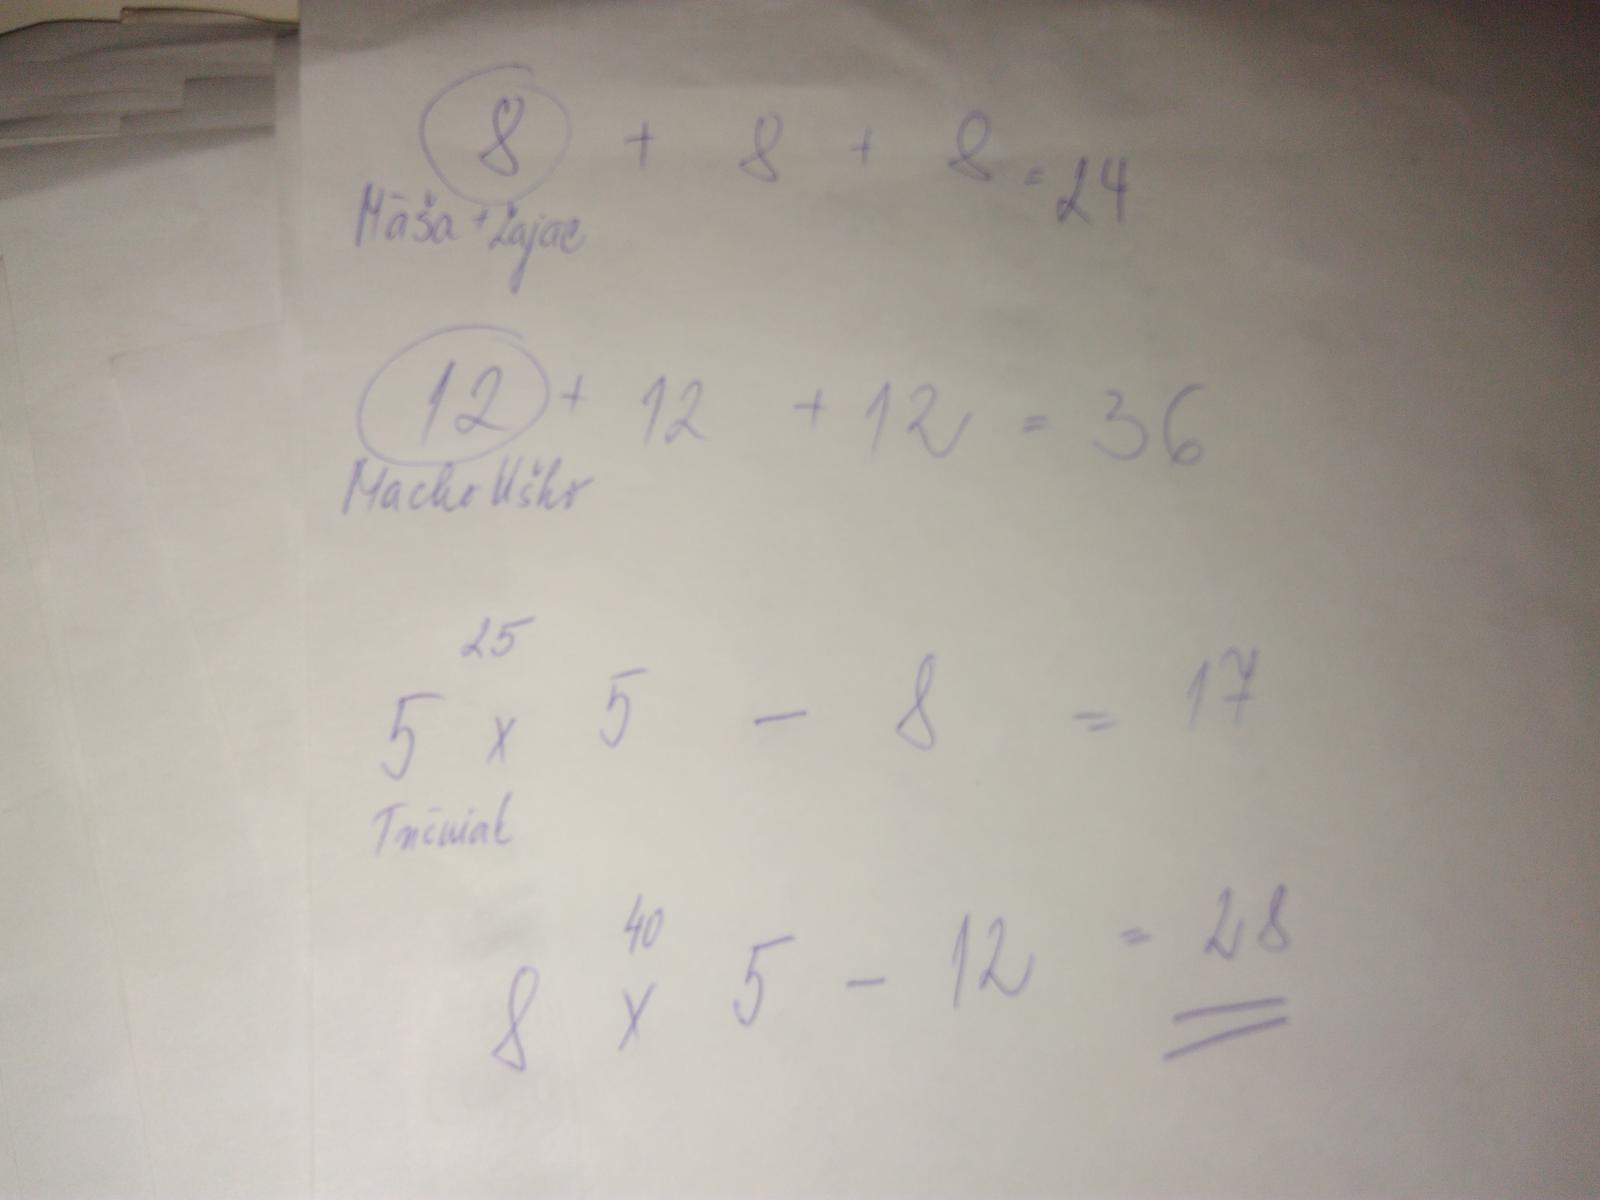 8 + 8 + 8 = 24
Máša + Zajac
12 + 12 + 12 = 36
25
5 x 5 - 8 = 17
40
8 x 5 - 12 = 28